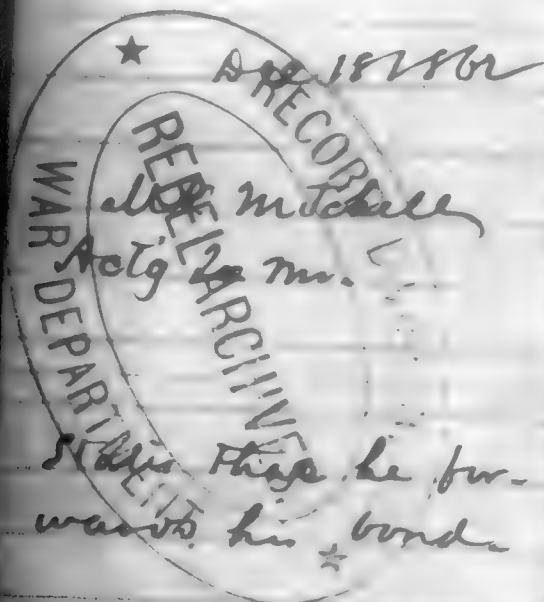 Dec 18 1862
Mitchell
Act'g Qr Mr.
States that he for-
wards his bond.
RECORD
REBEL ARCHIVES
WAR DEPARTMENT